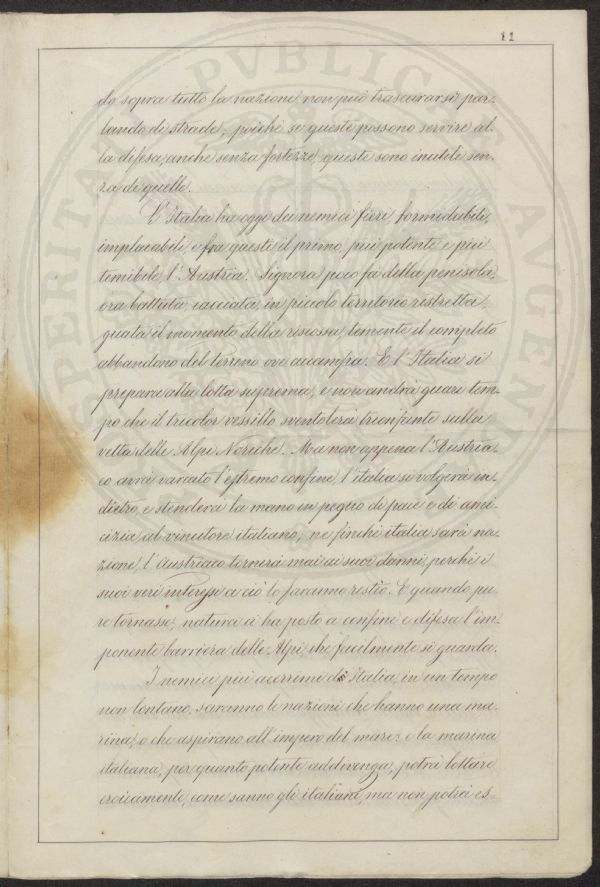 11
do sopra tutto la nazione non può trascurarsi par-
lando di strade, poichè se queste possono servire al-
la difesa anche senza fortezze, queste sono inutili sen-
za di quelle.
L'Italia ha oggi dei nemici fieri, formidabili,
implacabili, e fra questi il primo, più potente e più
temibile, l'Austria. Signora poco fa della penisola,
ora battuta, cacciata, in piccolo territorio ristretta,
guata il momento della riscossa, temente il completo
abbandono del terreno ove accampa. E l'Italia si
prepara alla lotta suprema, e non andrà guari tem-
po che il tricolor vessillo sventolerà trionfante sulla
vetta delle Alpi Noriche. Ma non appena l'Austria-
co avrà varcato l'estremo confine, l'italia si volgerà in-
dietro, e stenderà la mano in pegno di pace e di ami-
cizia al vincitore italiano, ne finchè italia sarà na-
zione, l'Austriaco tornerà mai ai suoi danni, perchè i
suoi veri interessi a ciò lo faranno restio. E quando pu-
re tornasse, natura ci ha posto a confine e difesa l'im-
ponente barriera delle Alpi, che facilmente si guarda.
I nemici più acerrimi d' Italia, in un tempo
non lontano, saranno le nazioni che hanno una ma-
rina, o che aspirano all'impero del mare: e la marina
italiana, per quanto potente addivenga, potrà lottare
eroicamente, come sanno gli italiani, ma non potrà es-
PROSPERITATI PVBLICAE AVGENDAE